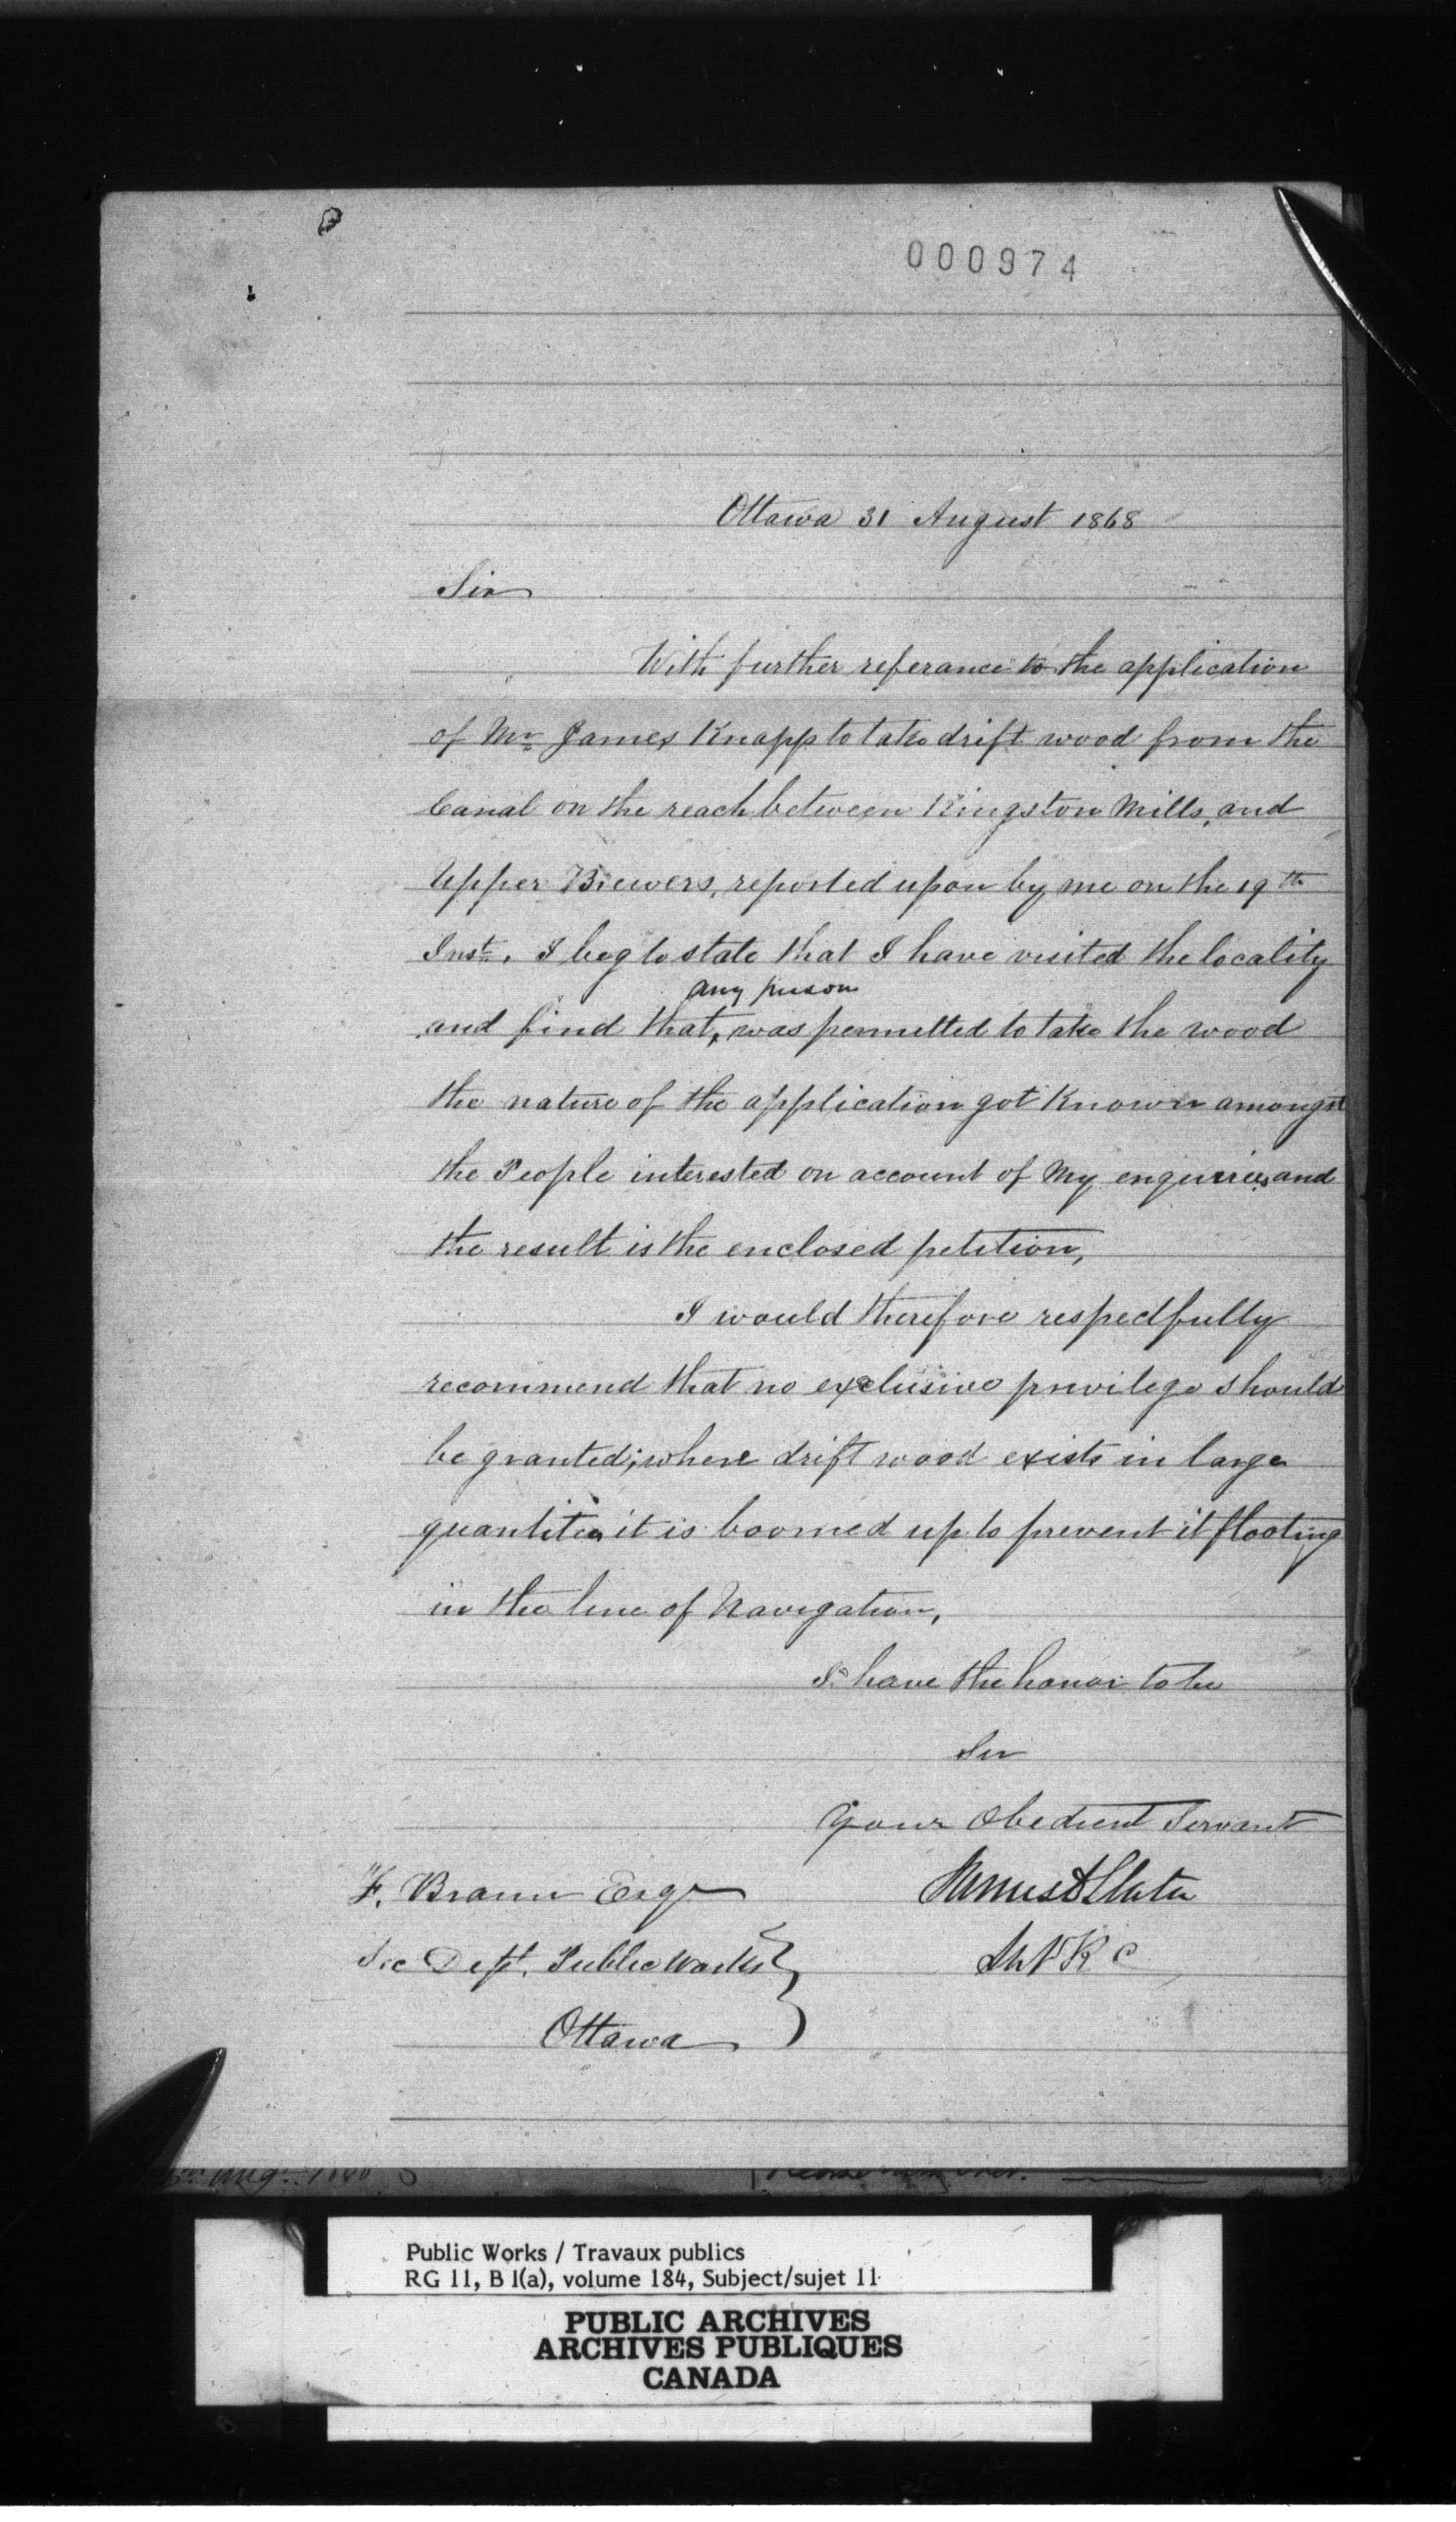 000974
Ottawa 31 August 1868
Sir
With further referance to the application
of Mr James Knapp to take drift wood from the
Canal on the reach between Kingston Mills, and
Upper Brewers, reported upon by me on the 19th
Inst. I beg to state that I have visited the locality
any person
and find that, was permitted to take the wood
the nature of the application got Known amongst
the People interested on account of My enquiries and
the result is the enclosed petition,
I would therefore respectfully
recommend that no exclusive privilege should
be granted; where drift wood exists in large
quantities it is boomed up to prevent it floating
in the line of Navigation,
I have the honor to be
Sir
Your Obedient Servant
F. Braun Esqr
James D Slater
Sec Dept. Public Works
Ottawa
Public Works / Travaux publics
RG 11, B 1(a), volume 184, Subject/sujet 11
PUBLIC ARCHIVES
ARCHIVES PUBLIQUES
CANADA